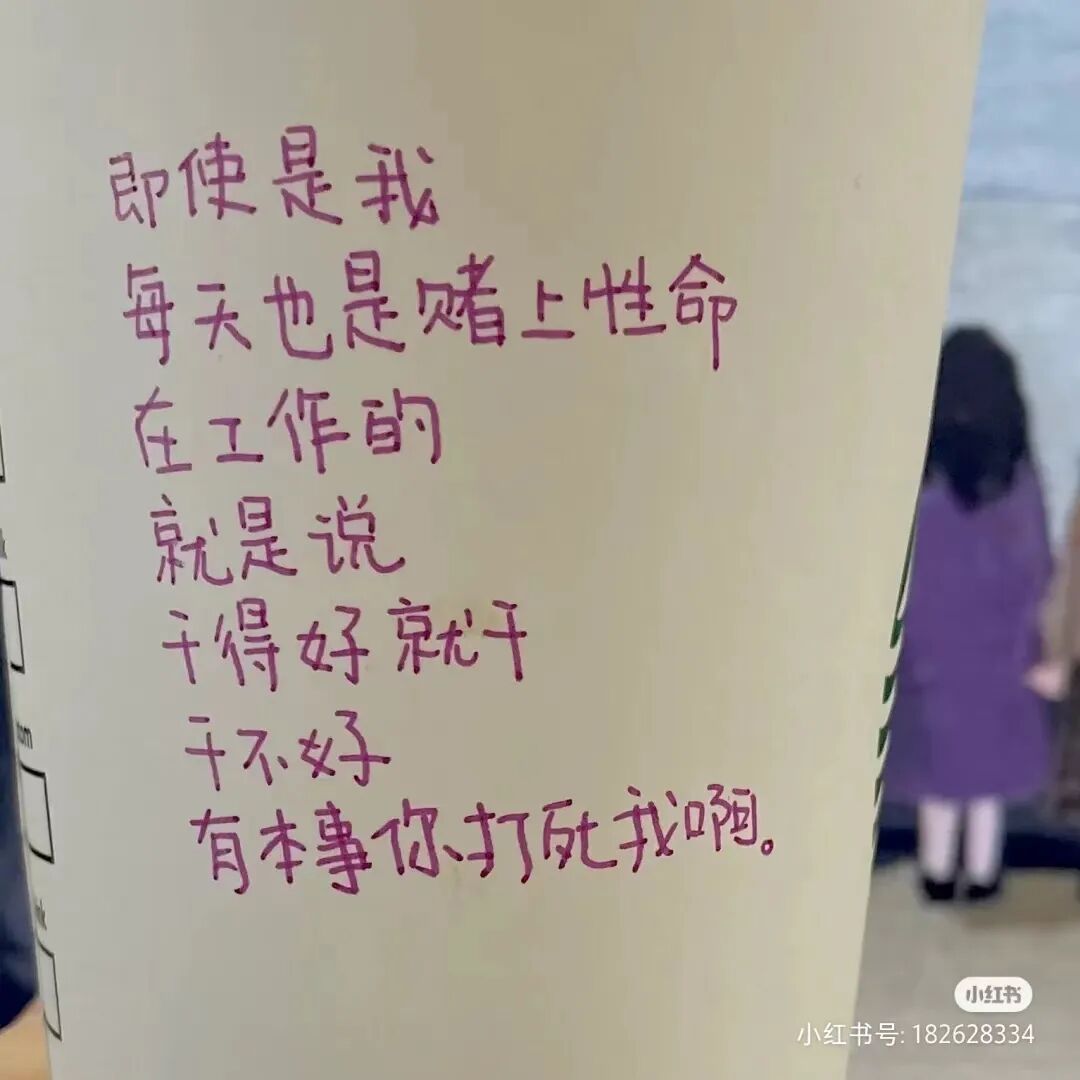 即使是我
每天也是赌上性命
在工作的
就是说
干得好就干
干不好
有本事你打死我啊。
小红书
小红书号: 182628334